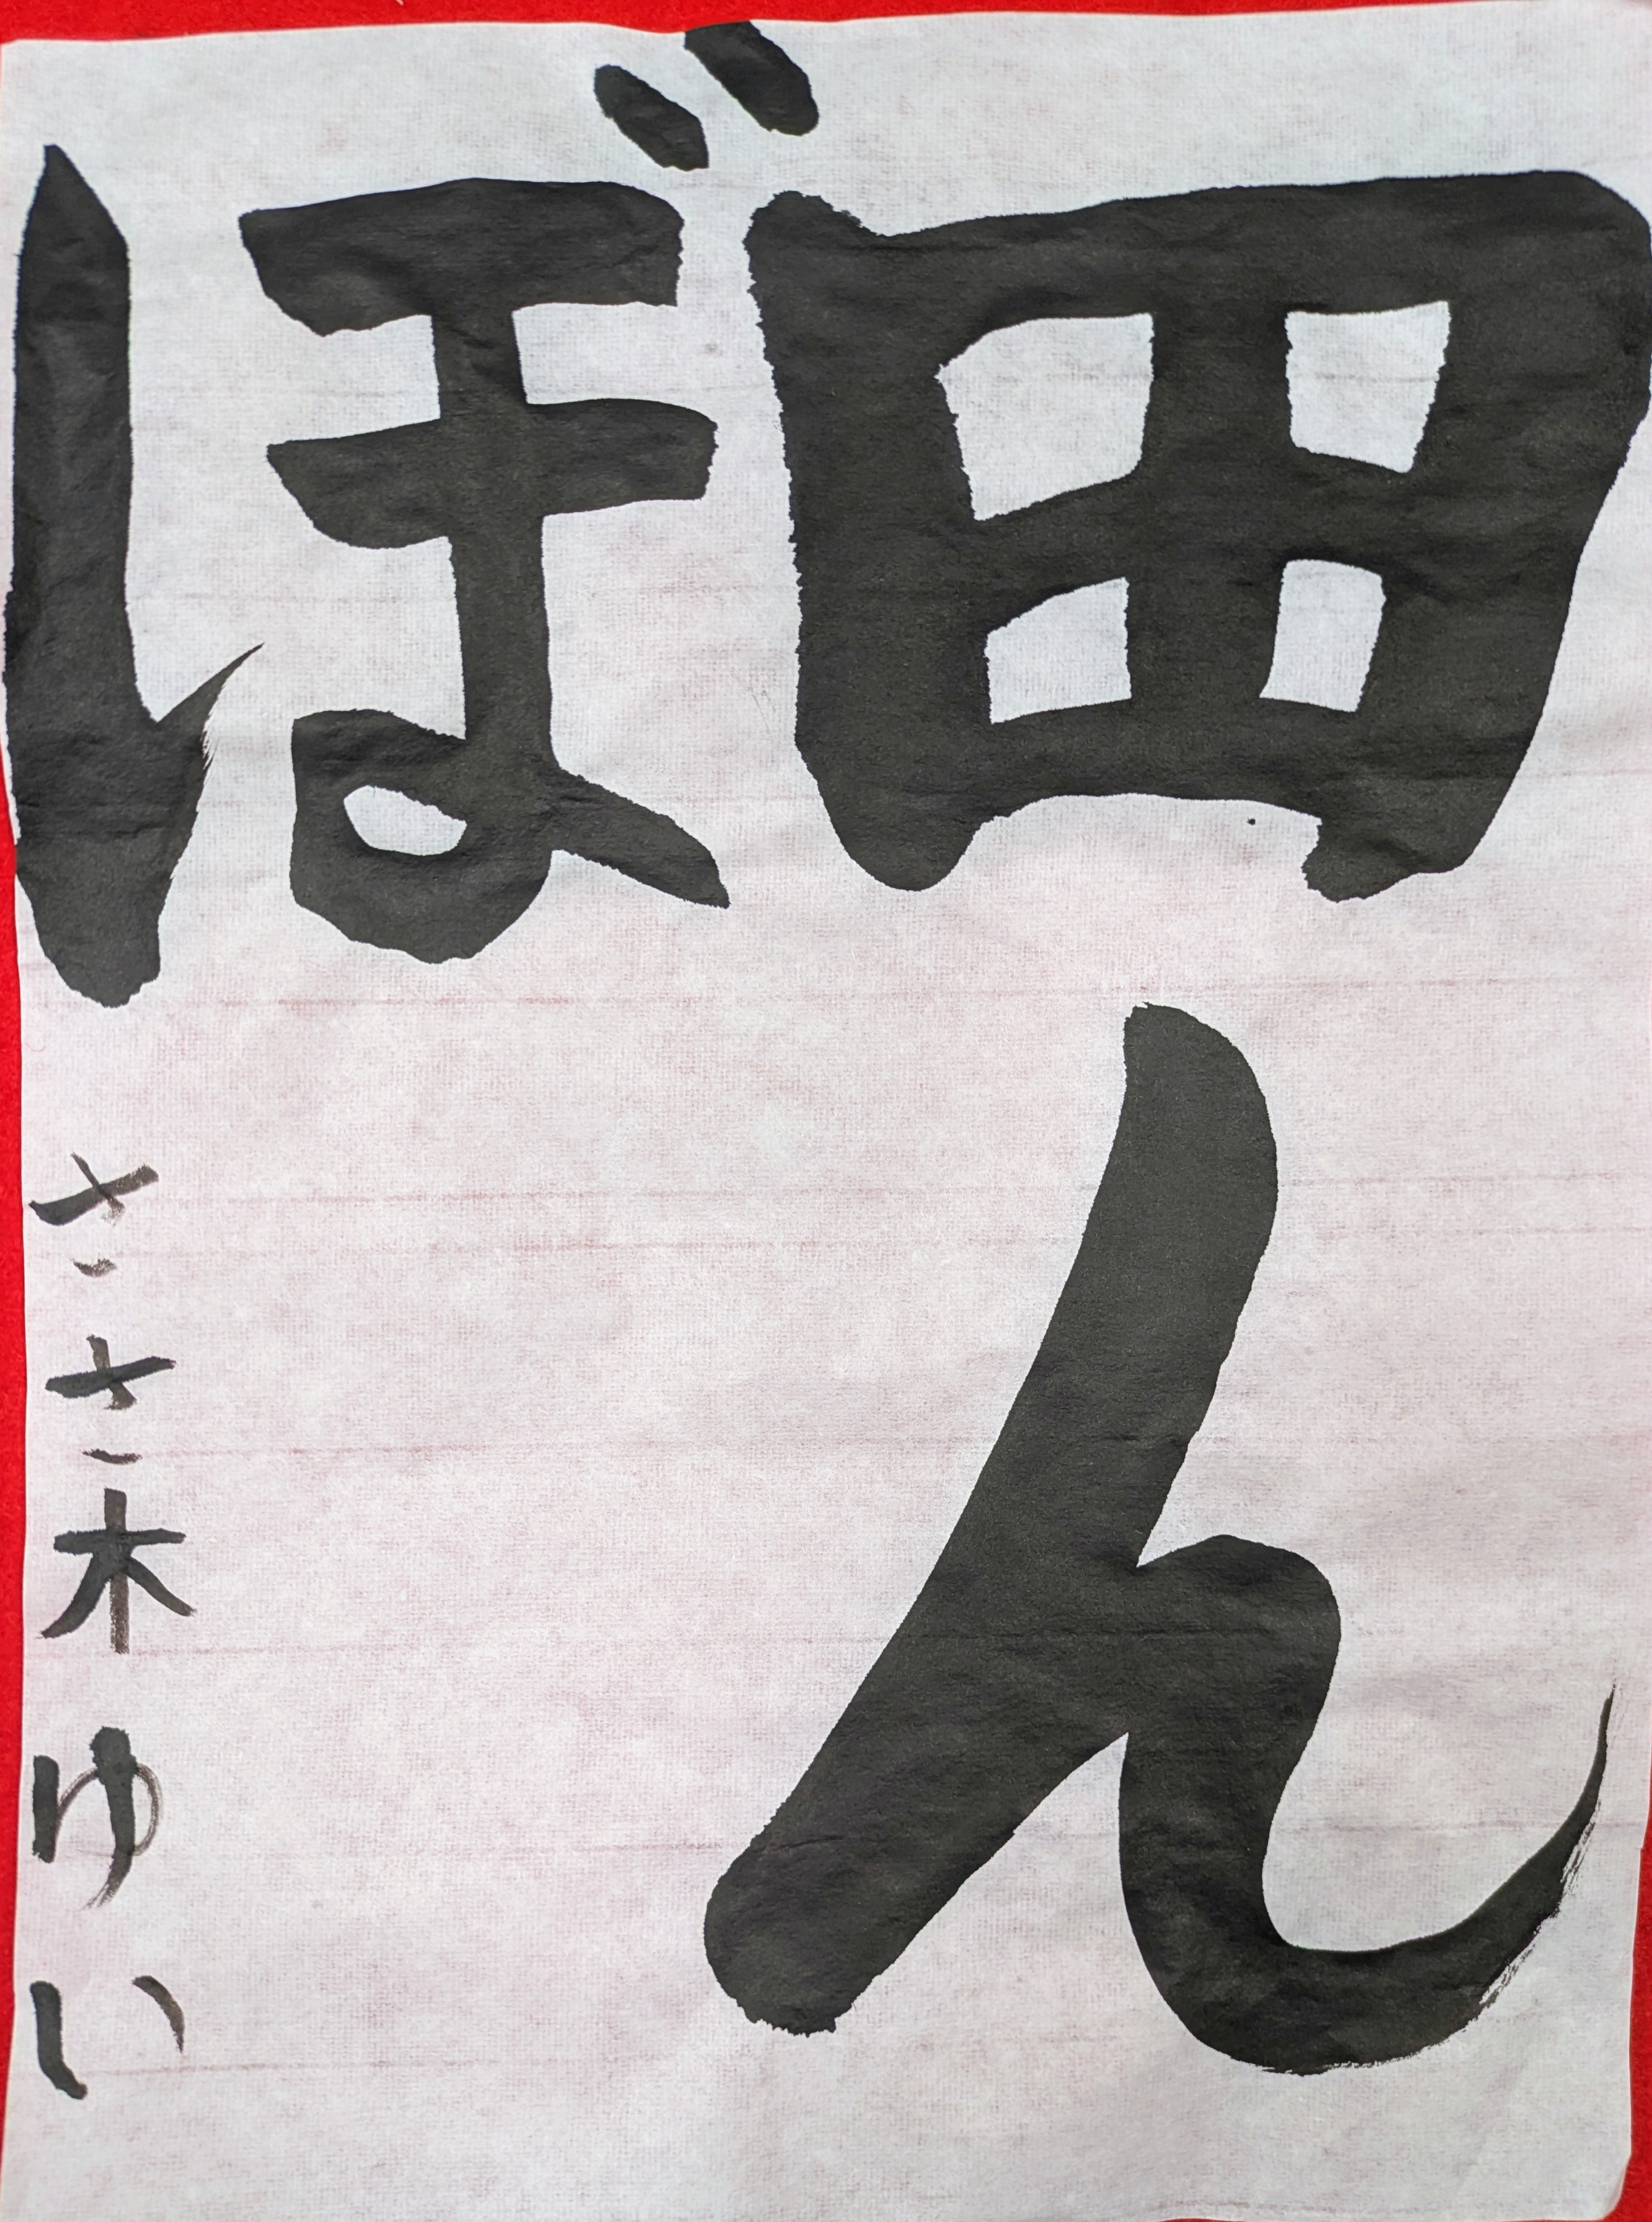 田ん
ぼ
ささ木 ゆい